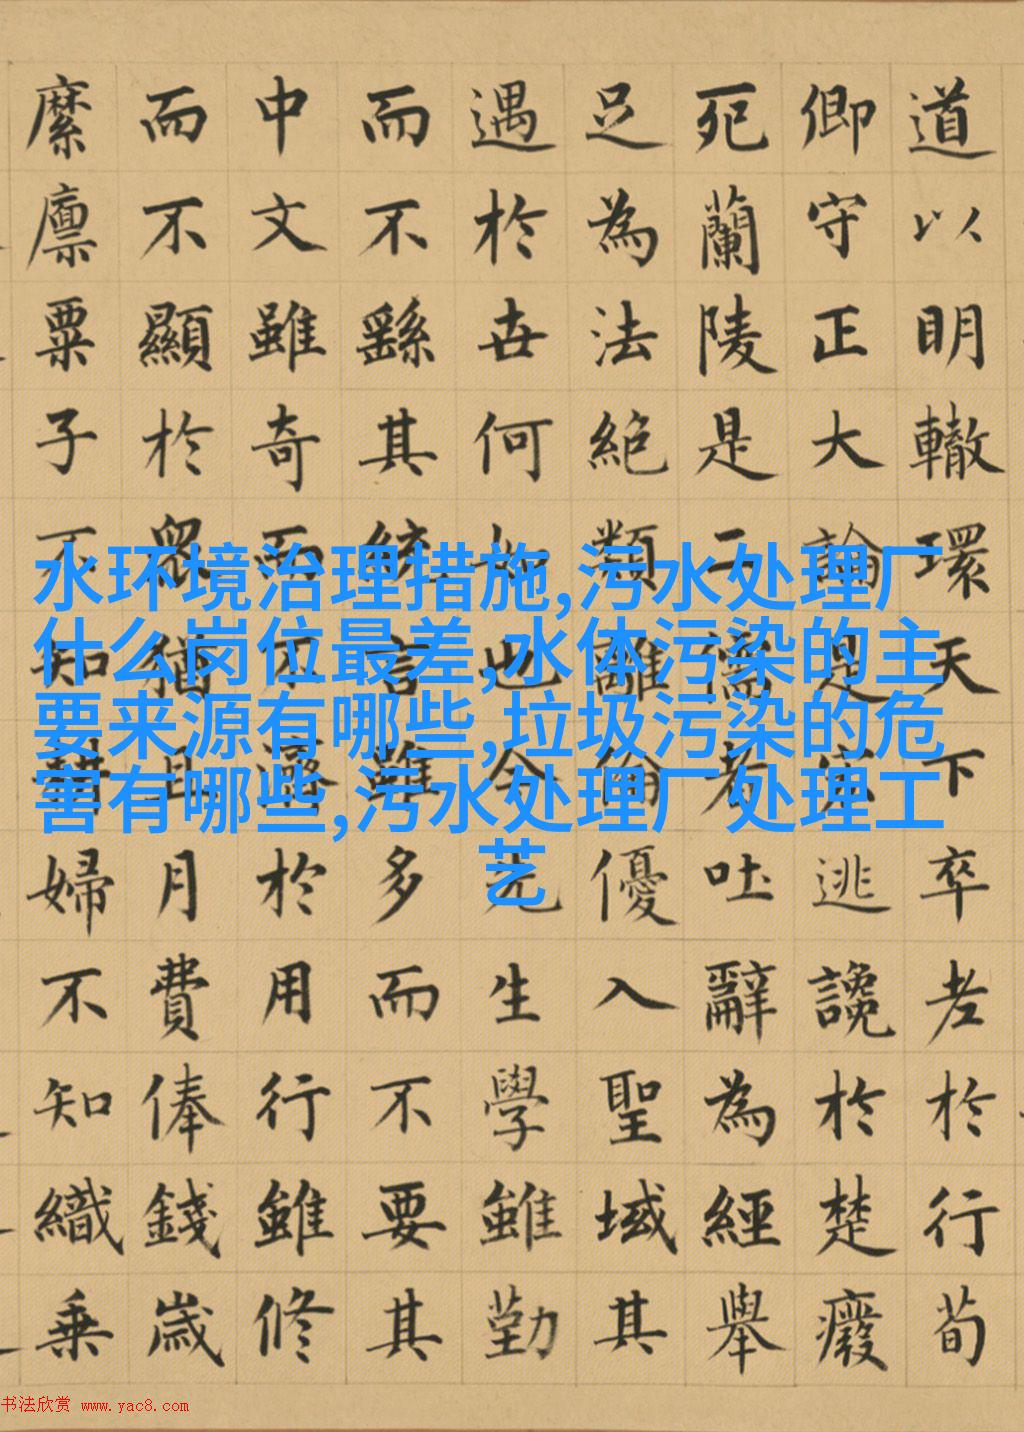 道以明轍環天下卒老於行荀
卿守正大論是宏逃讒於楚癈
死蘭陵是二儒者吐辭為經舉
足為法絕類離倫優入聖域其
遇於世何如也今先生學雖勤
而不繇其統言雖多而不要其
中文雖奇而不濟於用行雖修
而不顯於眾猶且月費俸錢歲
縻廩粟子不知耕婦不知織乗
水环境治理措施,污水处理厂
什么岗位最差,水体污染的主
要来源有哪些,垃圾污染的危
害有哪些,污水处理厂处理工
艺
书法欣赏 www.yac8.com